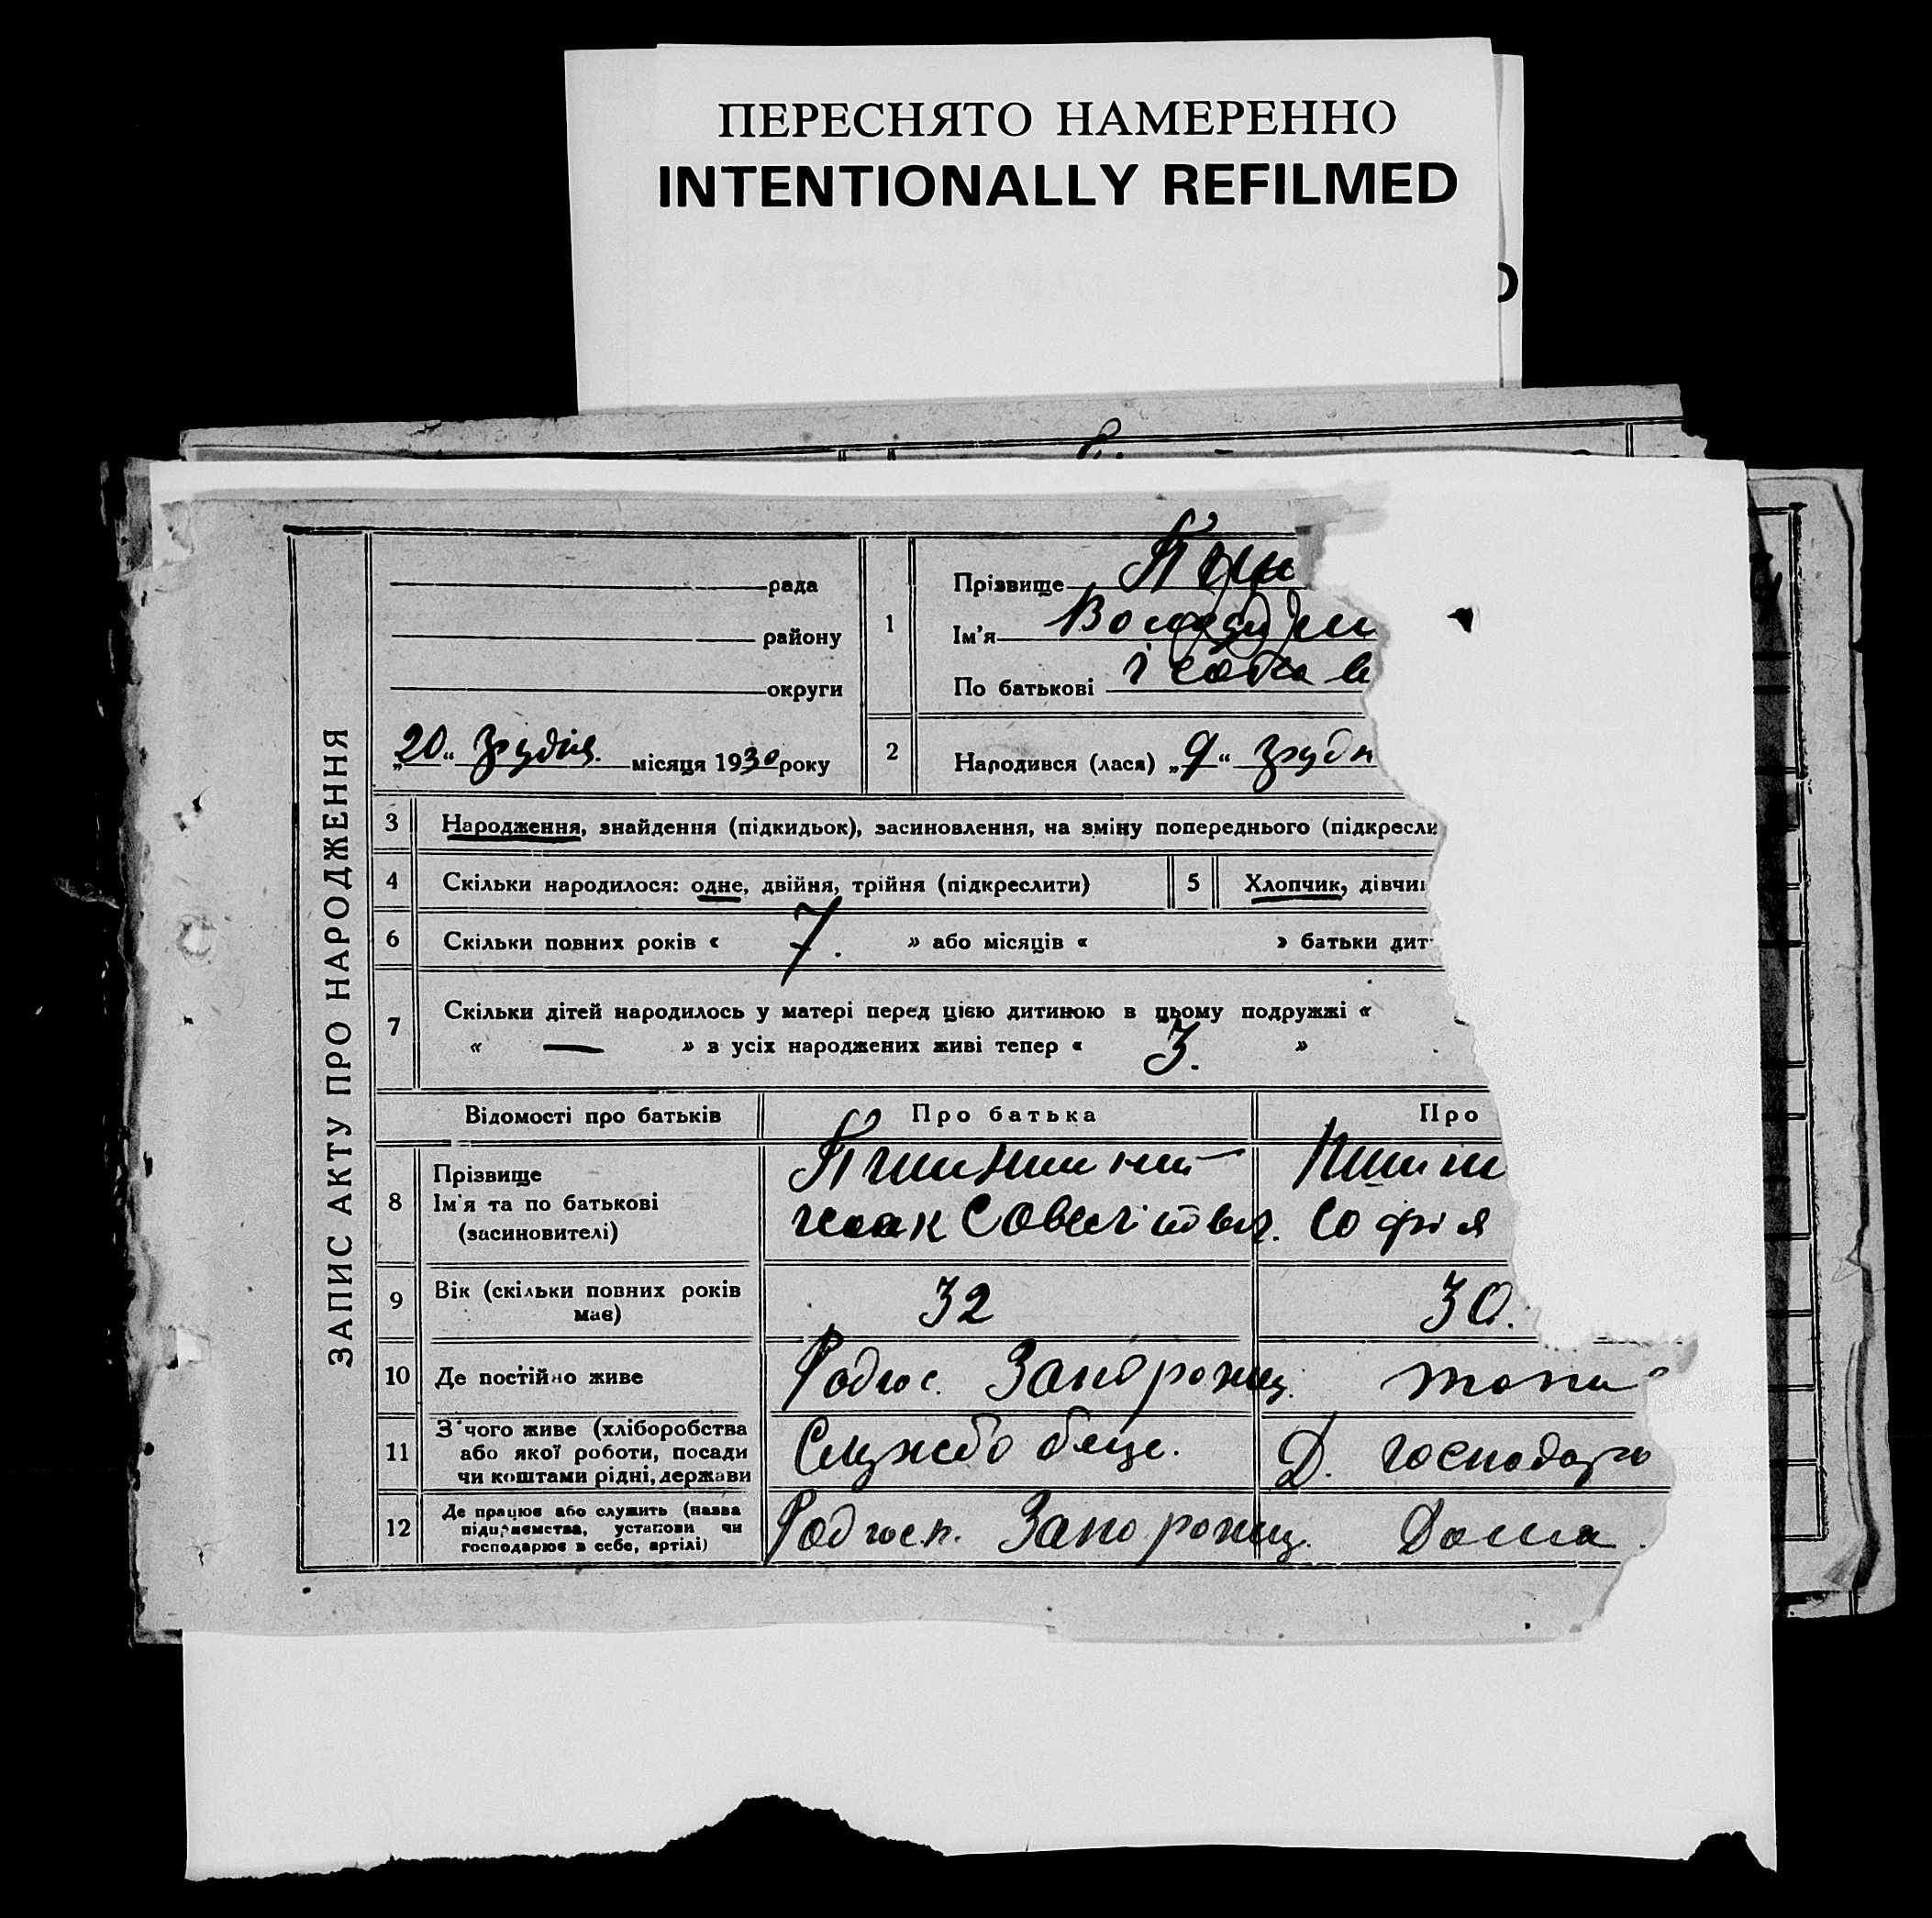 ПЕРЕСНЯТО НАМЕРЕННО
INTENTIONALLY REFILMED
ЗАПИС АКТУ ПРО НАРОДЖЕННЯ
рада
району
округи
„20“ грудня місяця 1930 року
1
Прізвище
Ім'я Володими
По батькові
2
Народився (лася) „9“ грудн
3 Народження, знайдення (підкидьок), засиновлення, на зміну попереднього (підкресли
4 Скільки народилося: одне, двійня, трійня (підкреслити) 5 Хлопчик, дівчи
6 Скільки повних років « 7. » або місяців « » батьки дит
7 Скільки дітей народилось у матері перед цією дитиною в цьому подружжі «
« — » з усіх народжених живі тепер « 3. »
Відомості про батьків Про батька Про
8 Прізвище
Ім'я та по батькові Софія
(засиновителі)
9 Вік (скільки повних років 32 30.
має)
10 Де постійно живе Запорожец.
11 З чого живе (хліборобства
або якої роботи, посади Д. господарь
чи коштами рідні, держави
12 Де працює або служить (назва
підприємства, установи чи Запорожец. Дома.
господарює в себе, артілі)